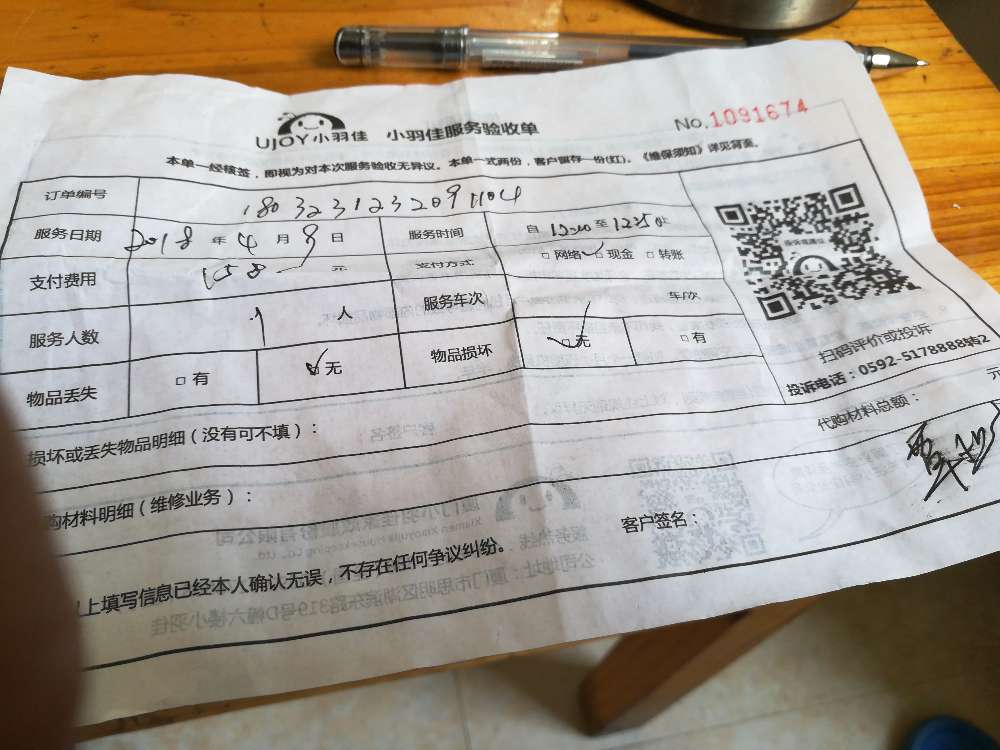 UJOY小羽佳 小羽佳服务验收单 No.1091674
本单一经核签，即视为对本次服务验收无异议。本单一式两份，客户留存一份(红)。《维保须知》详见背面。
订单编号 1803231232091104
服务日期 2018 年 4 月 9 日 服务时间 自 至 止
支付费用 158 元 支付方式 □网络 ✓□现金 □转账
服务人数 1 人 服务车次 车/次
物品丢失 □有 ✓无 物品损坏 ✓□无 □有
扫码评价或投诉
投诉电话：0592-5178888转2
损坏或丢失物品明细（没有可不填）：
代购材料总额： 元
购材料明细（维修业务）：
上填写信息已经本人确认无误，不存在任何争议纠纷。 客户签名：